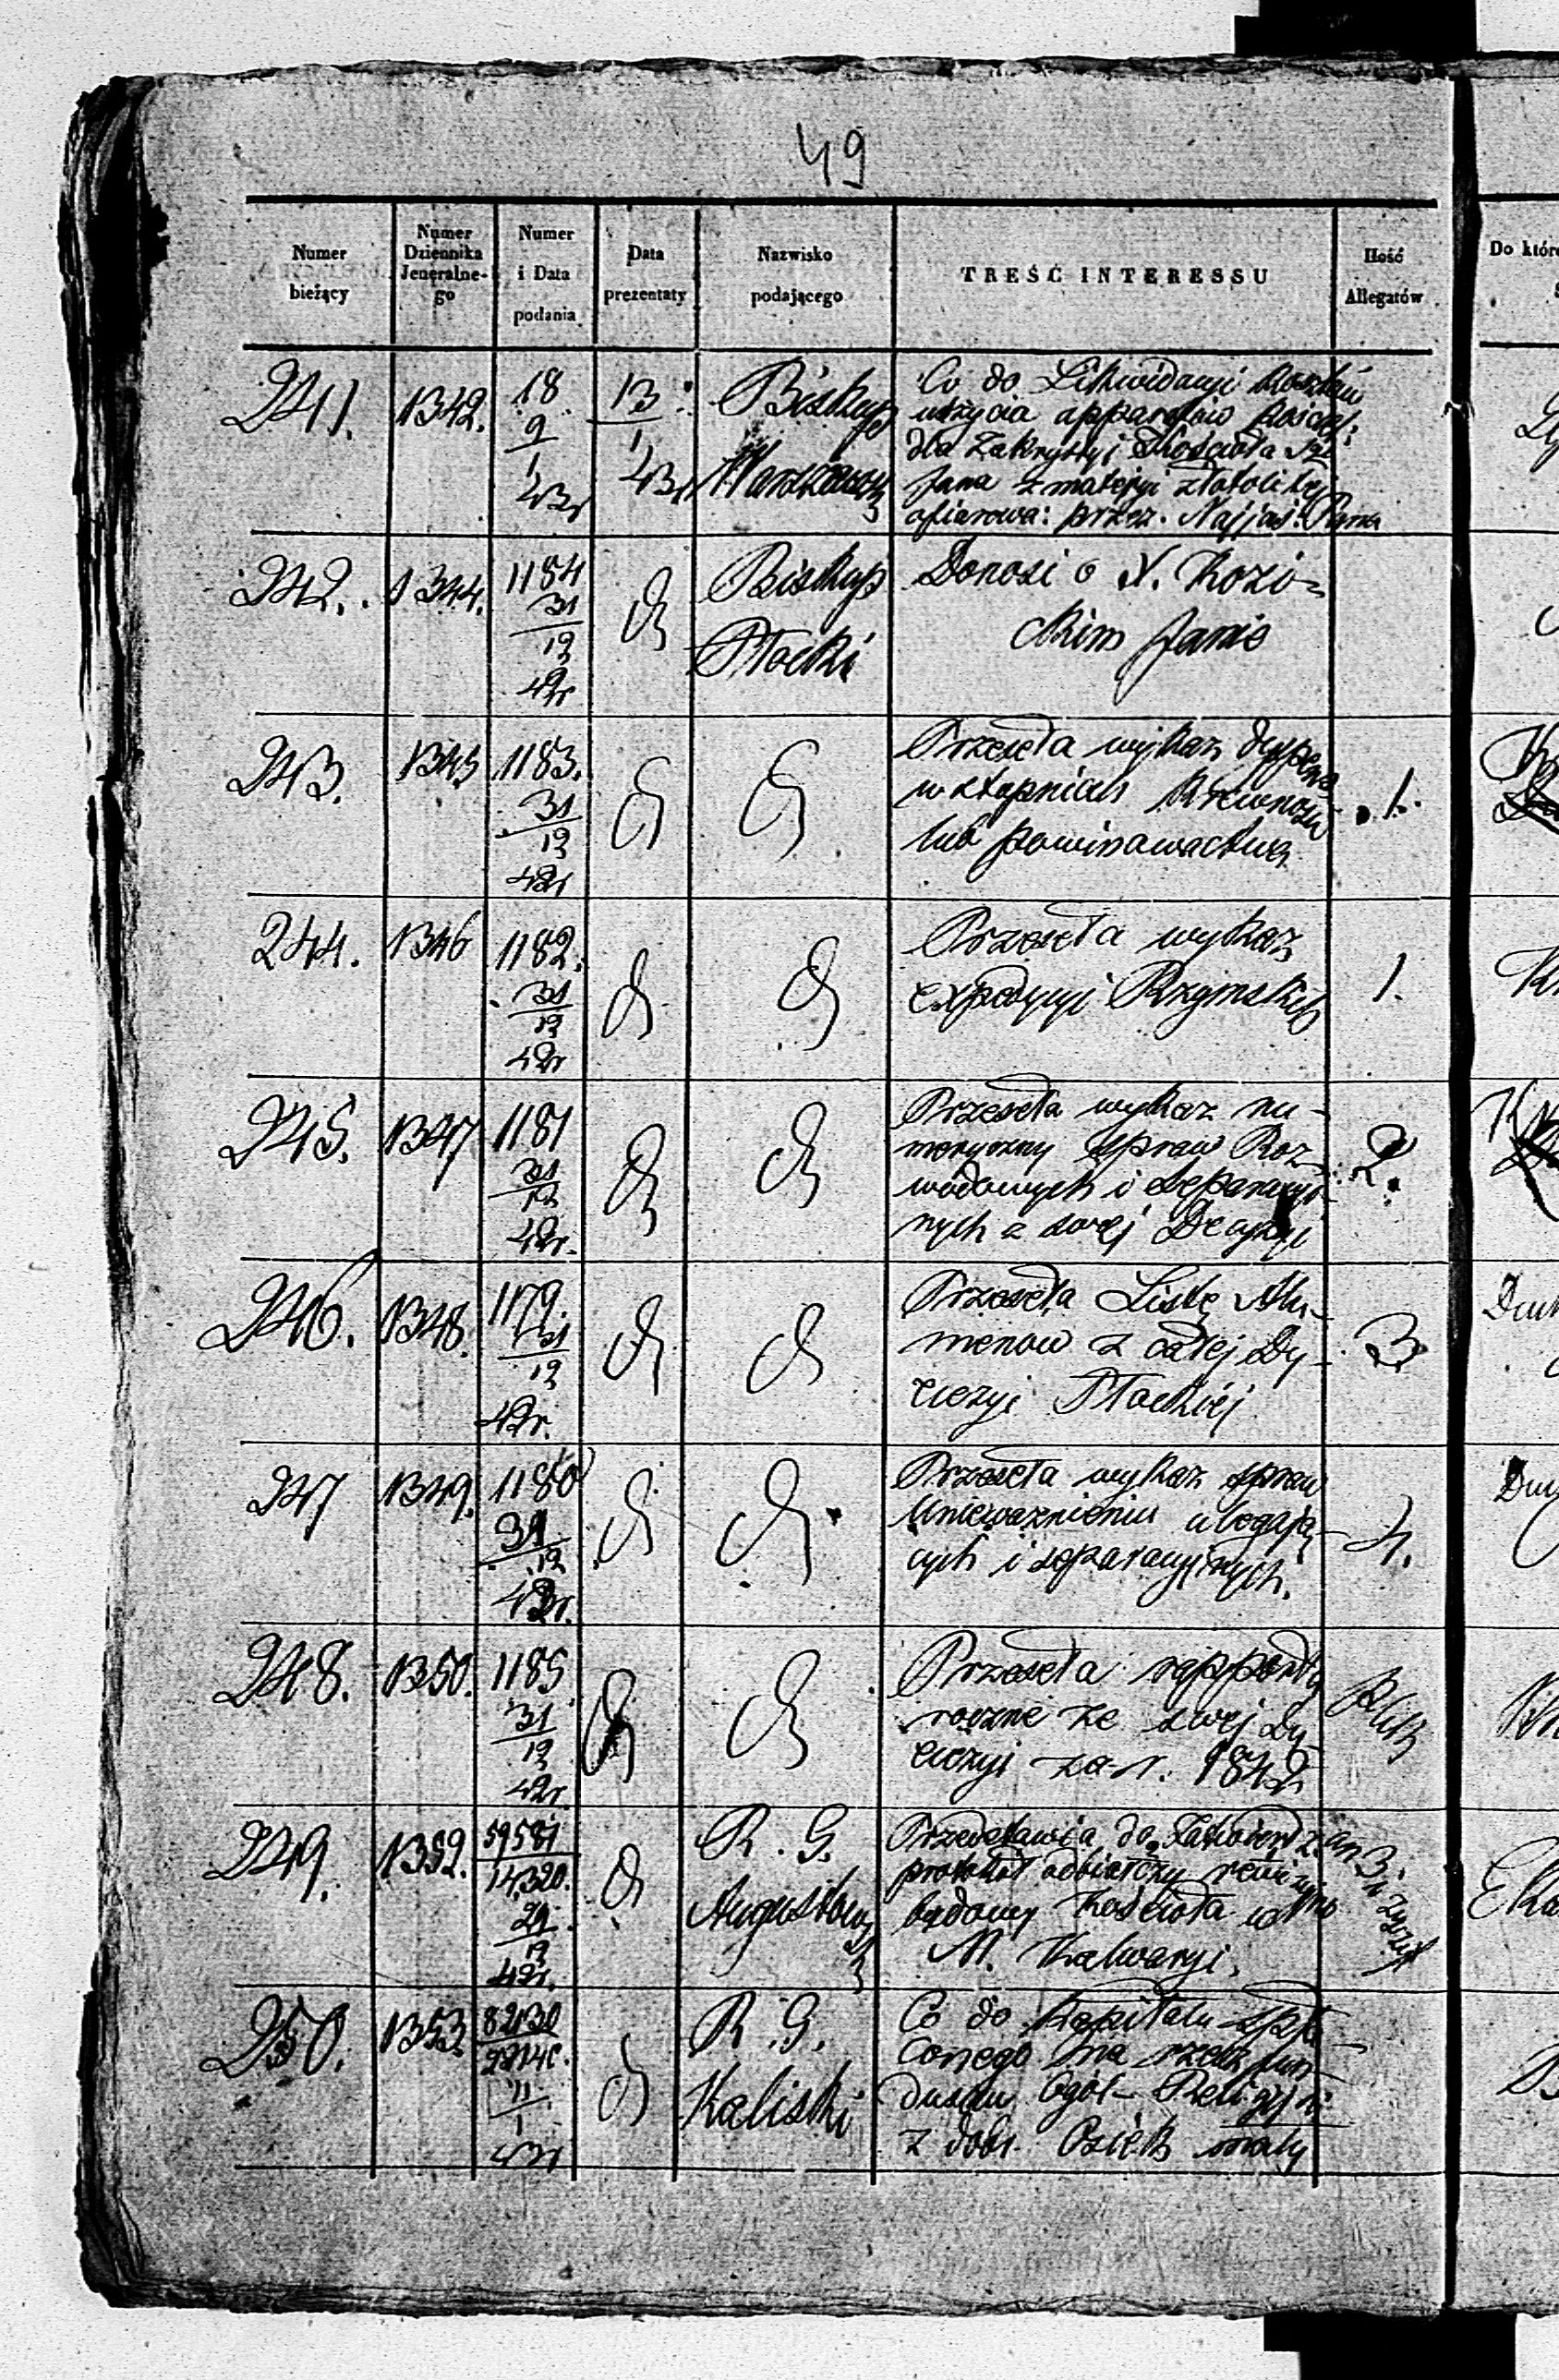 49
Numer bieżący
Numer Dziennika Jeneralne-go
Numer i Data podania
Data prezentaty
Nazwisko podającego
TREŚĆ INTERESSU
Ilość Allegatów
Do któr
241.
1342.
18
9
1
43r
13
1
43r
Biskup
Warszawski
Co do Likwidacyi kosztów
uszycia apparatów kościel:
dla Zakrystyi Kościoła Sgo
Jana z materyi złotolitej
ofiarowa: przez. Najjaś: Pana
242.
1344.
1184
31
12
42r
d
Biskup
Płocki
Donosi o X. Kozi-
ckim Janie
243.
1345
1183.
31
12
42r
d
d
Przeseła wykaz dyspens
w stopniach Krewności
lub powinowactwa
1.
244.
1346
1182.
31
12
42r
d
d
Przeseła wykaz
expedycyi Rzymskich
1.
245.
1347
1181
31
12
42r.
d
d
Przeseła wykaz nu-
meryczny spraw Roz-
wodowych i Separacyj-
nych z swej Decyzyi
2.
246.
1348.
1179.
31
12
42r.
d
d
Przeseła Listę Alu-
mnow z całej Dy-
ecezyi Płockiej
3
247
1349.
1180
31
12
42r.
d
d
Przeseła wykaz spraw
Unieważnieniu ulegają-
cych i separacyjnych.
4.
248.
1350.
1185
31
12
42r.
d
d
Przeseła rapporta
roczne ze swej Dy-
ecezyi za r. 1842
249.
1352.
59581
14320.
29
12
42r.
d
R. G.
Augustows
Przedstawia do Zatwierdzen
protokół odbiorczy rewizyjno
budowy Kościoła w
M. Kalwaryi.
3
250.
1353.
82130
11
1
43r
d
R. G.
Kaliski
Co do Kapitału spła-
conego na rzecz fun-
duszu Ogól- Religijn:
z dobr Osiek mały